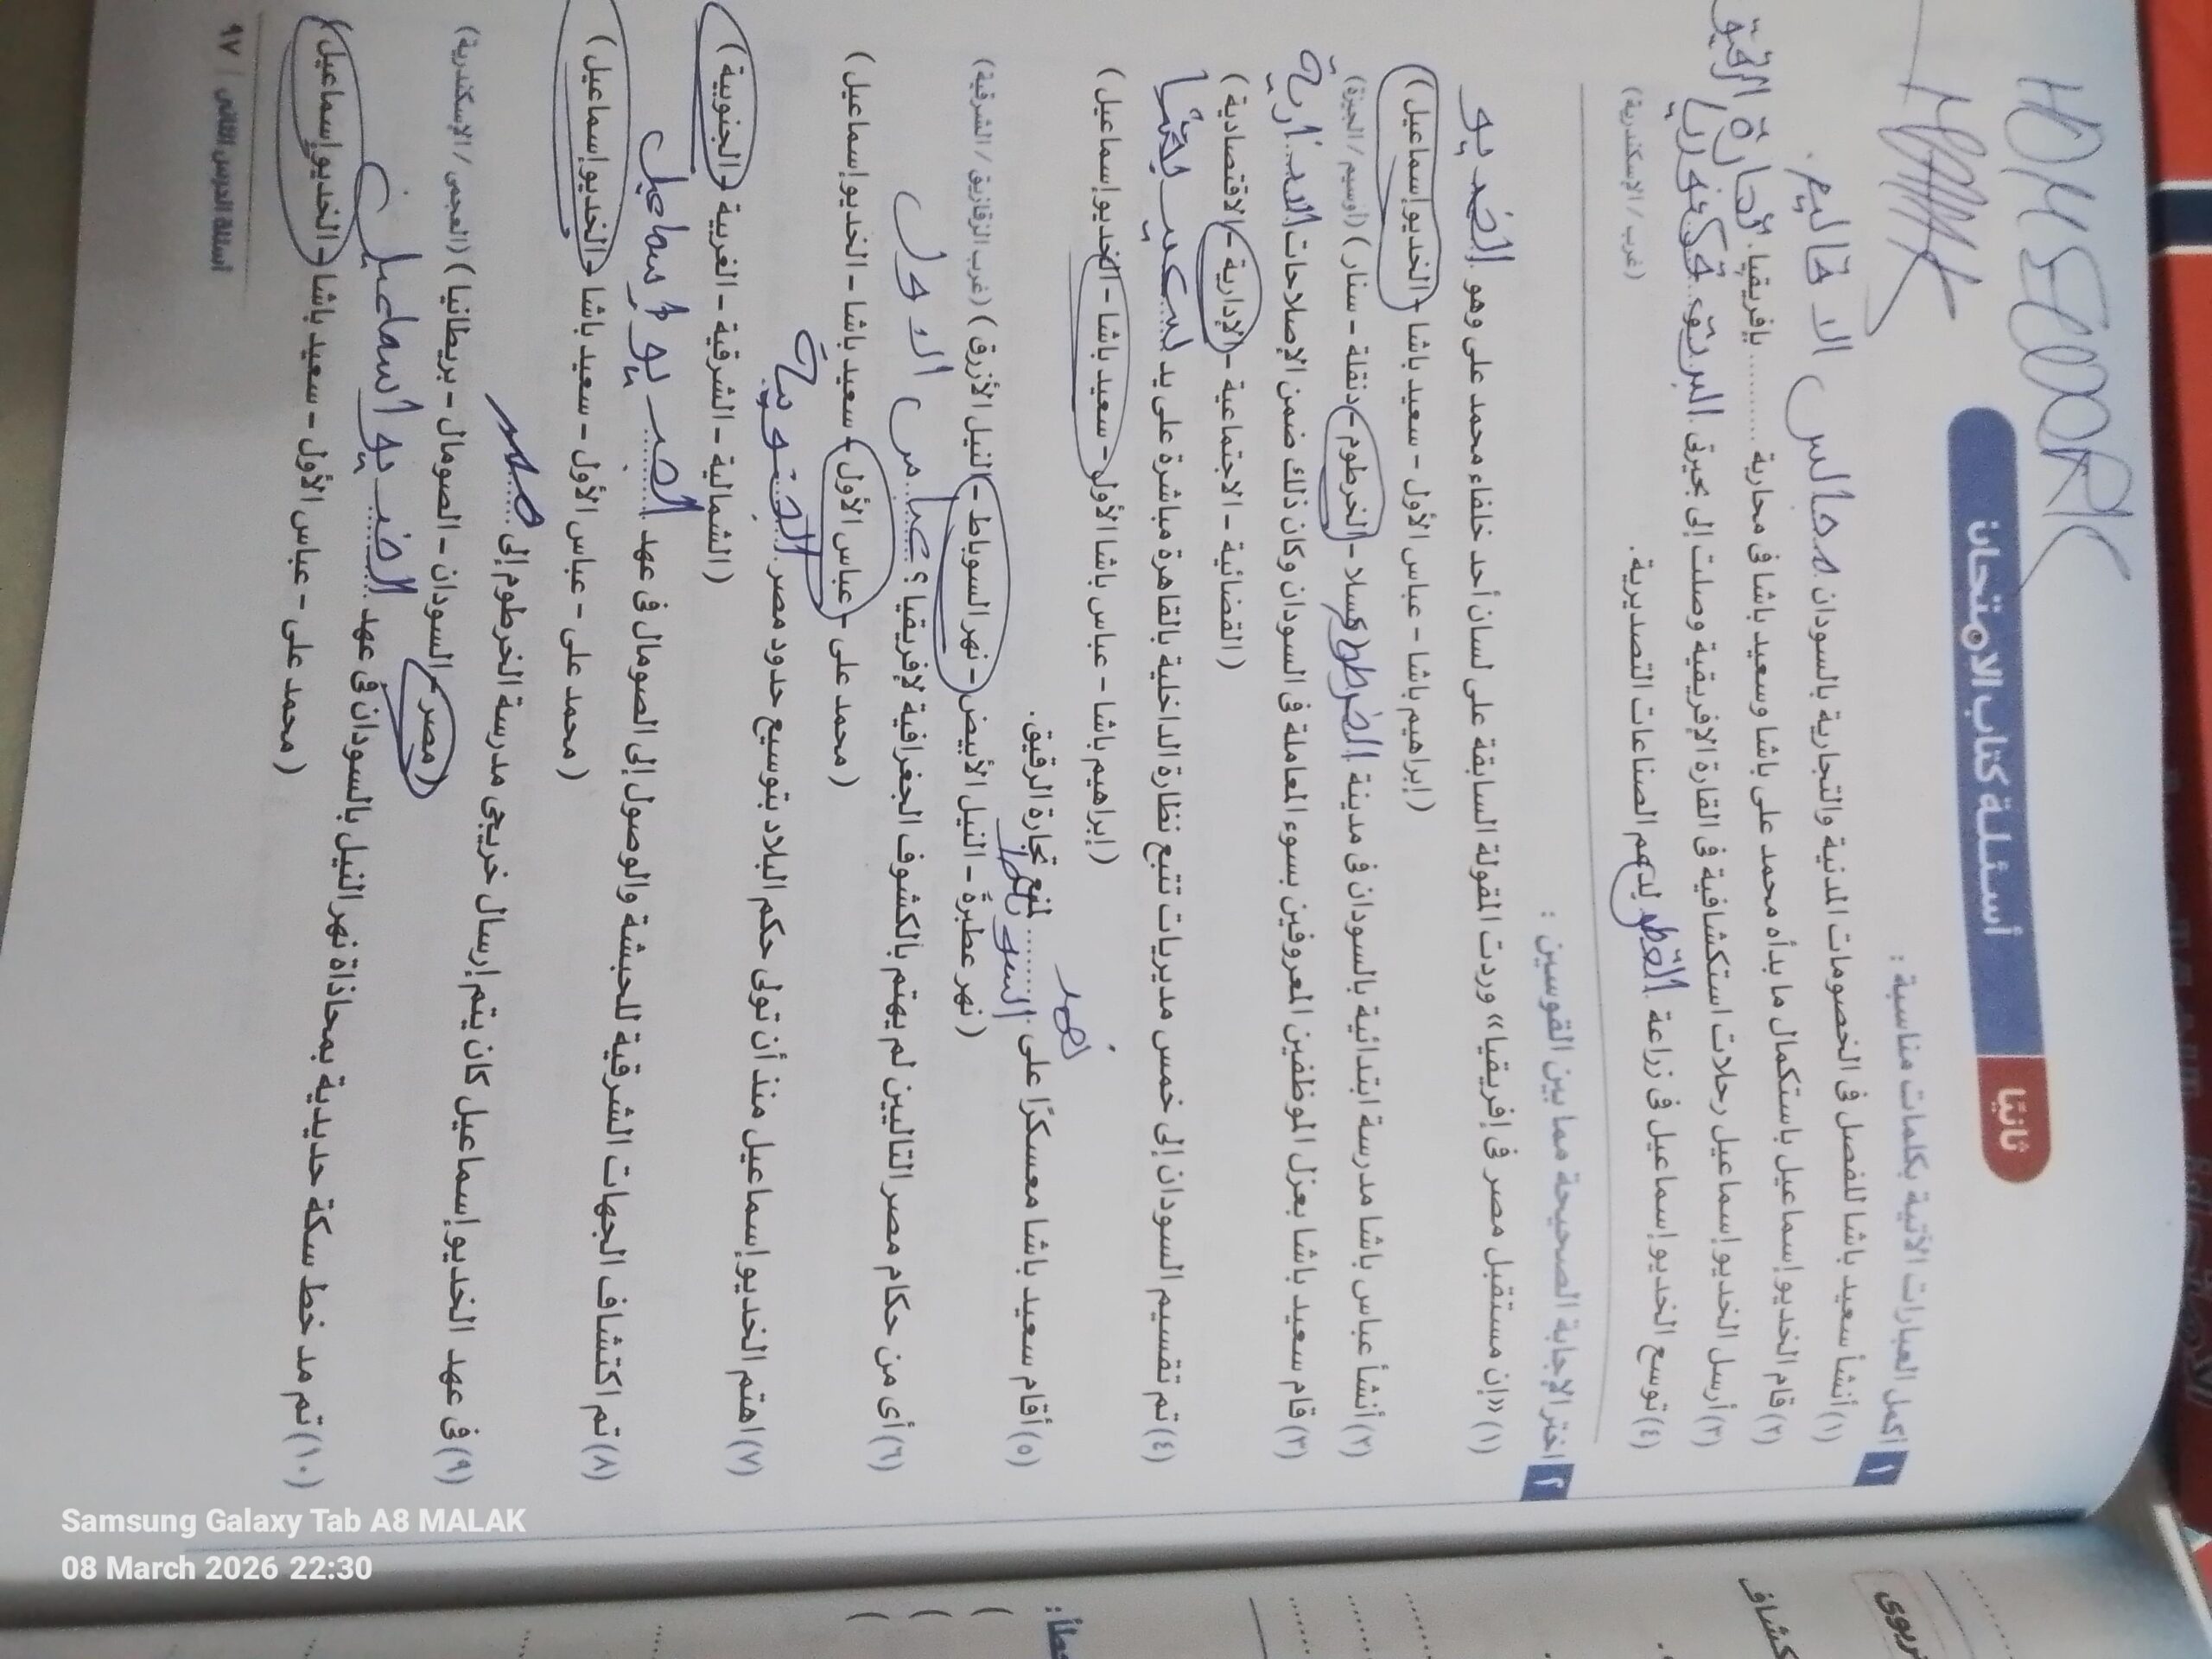 HOMEWORK
ثانيًا
أسئلة كتاب الامتحان
١ أكمل العبارات الآتية بكلمات مناسبة :
(١) أنشأ سعيد باشا للفصل فى الخصومات المدنية والتجارية بالسودان مجالس الاقاليم.
(٢) قام الخديو إسماعيل باستكمال ما بدأه محمد على باشا وسعيد باشا فى محاربة .......... بإفريقيا. تجارة الرقيق
(٣) أرسل الخديو إسماعيل رحلات استكشافية فى القارة الإفريقية وصلت إلى بحيرتى البرت
(٤) توسع الخديو إسماعيل فى زراعة القطن لدعم الصناعات التصديرية. (غرب / الإسكندرية)
٢ اختر الإجابة الصحيحة مما بين القوسين :
(١) «إن مستقبل مصر فى إفريقيا» وردت المقولة السابقة على لسان أحد خلفاء محمد على وهو الخديو
(إبراهيم باشا - عباس الأول - سعيد باشا - الخديو إسماعيل)
(٢) أنشأ عباس باشا مدرسة ابتدائية بالسودان فى مدينة الخرطوم (كسلا - الخرطوم - دنقلة - سنار) (أوسيم / الجيزة)
(٣) قام سعيد باشا بعزل الموظفين المعروفين بسوء المعاملة فى السودان وكان ذلك ضمن الإصلاحات الادارية
(القضائية - الاجتماعية - الإدارية - الاقتصادية)
(٤) تم تقسيم السودان إلى خمس مديريات تتبع نظارة الداخلية بالقاهرة مباشرة على يد
(إبراهيم باشا - عباس باشا الأول - سعيد باشا - الخديو إسماعيل)
(٥) أقام سعيد باشا معسكرًا على .......... لمنع تجارة الرقيق.
نهر السوباط
(نهر عطبرة - النيل الأبيض - نهر السوباط - النيل الأزرق) (غرب الزقازيق / الشرقية)
(٦) أى من حكام مصر التاليين لم يهتم بالكشوف الجغرافية لإفريقيا ؟ عباس الاول
(محمد على - عباس الأول - سعيد باشا - الخديو إسماعيل)
(٧) اهتم الخديو إسماعيل منذ أن تولى حكم البلاد بتوسيع حدود مصر الجنوبية
(الشمالية - الشرقية - الغربية - الجنوبية)
(٨) تم اكتشاف الجهات الشرقية للحبشة والوصول إلى الصومال فى عهد الخديو اسماعيل
(محمد على - عباس الأول - سعيد باشا - الخديو إسماعيل)
(٩) فى عهد الخديو إسماعيل كان يتم إرسال خريجى مدرسة الخرطوم إلى مصر
(مصر - السودان - الصومال - بريطانيا) (العجمى / الإسكندرية)
(١٠) تم مد خط سكة حديدية بمحاذاة نهر النيل بالسودان فى عهد الخديو اسماعيل
(محمد على - عباس الأول - سعيد باشا - الخديو إسماعيل)
أسئلة الدرس الثانى | ٩٧
Samsung Galaxy Tab A8 MALAK
08 March 2026 22:30